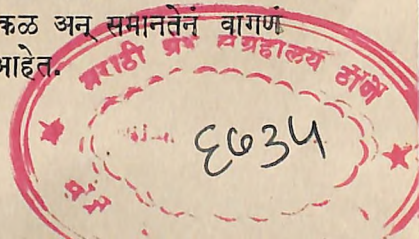 कळ अन् समानतेनं वागणं
आहेत.
मराठी ग्रंथ संग्रहालय ठाणे
६७३५